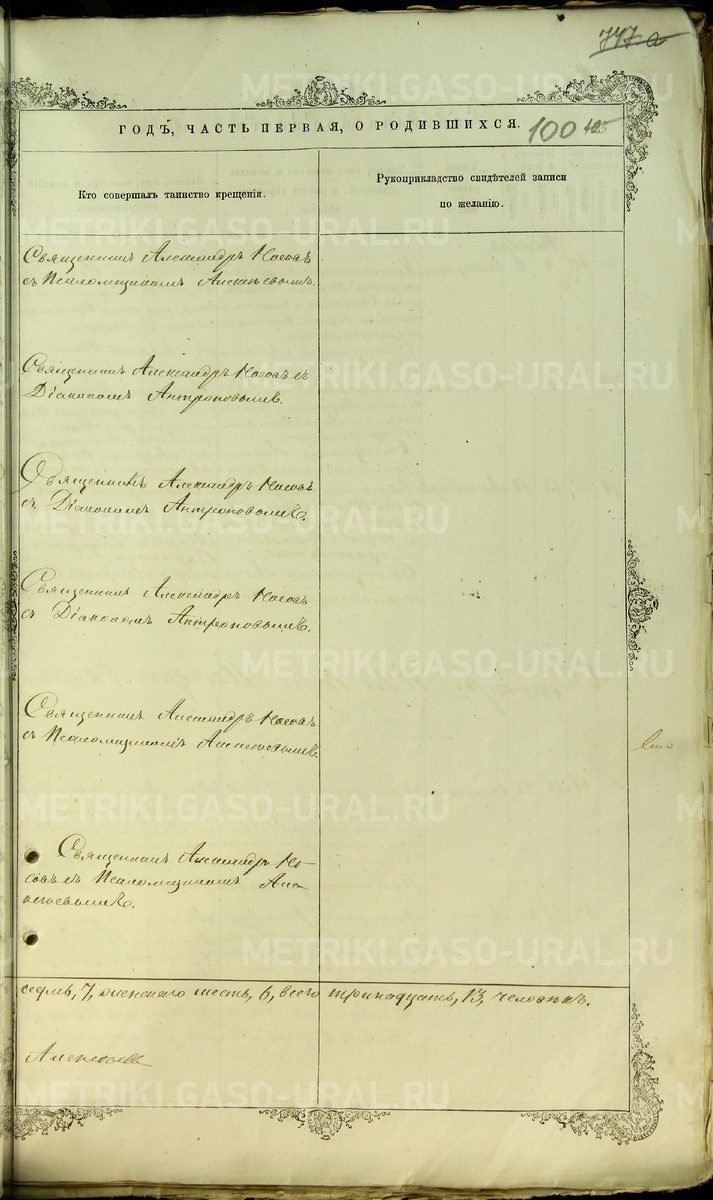 747 а
ГОДЪ, ЧАСТЬ ПЕРВАЯ, О РОДИВШИХСЯ.
100
Кто совершалъ таинство крещенія.
Рукоприкладство свидѣтелей записи
по желанію.
Священникъ Александръ Носовъ
съ Псаломщикомъ Алексѣевымъ.
Священникъ Александръ Носовъ съ
Діакономъ Антроповымъ.
Священникъ Александръ Носовъ
съ Діакономъ Антроповымъ.
Священникъ Александръ Носовъ
съ Діакономъ Антроповымъ.
Священникъ Александръ Носовъ
съ Псаломщикомъ Алексѣевымъ.
Священникъ Александръ Но-
совъ съ Псаломщикомъ Але-
ксѣевымъ.
седмь, 7, женскаго шесть, 6, всего тринадцать, 13, человѣкъ.
Алексѣевъ
METRIKI.GASO-URAL.RU